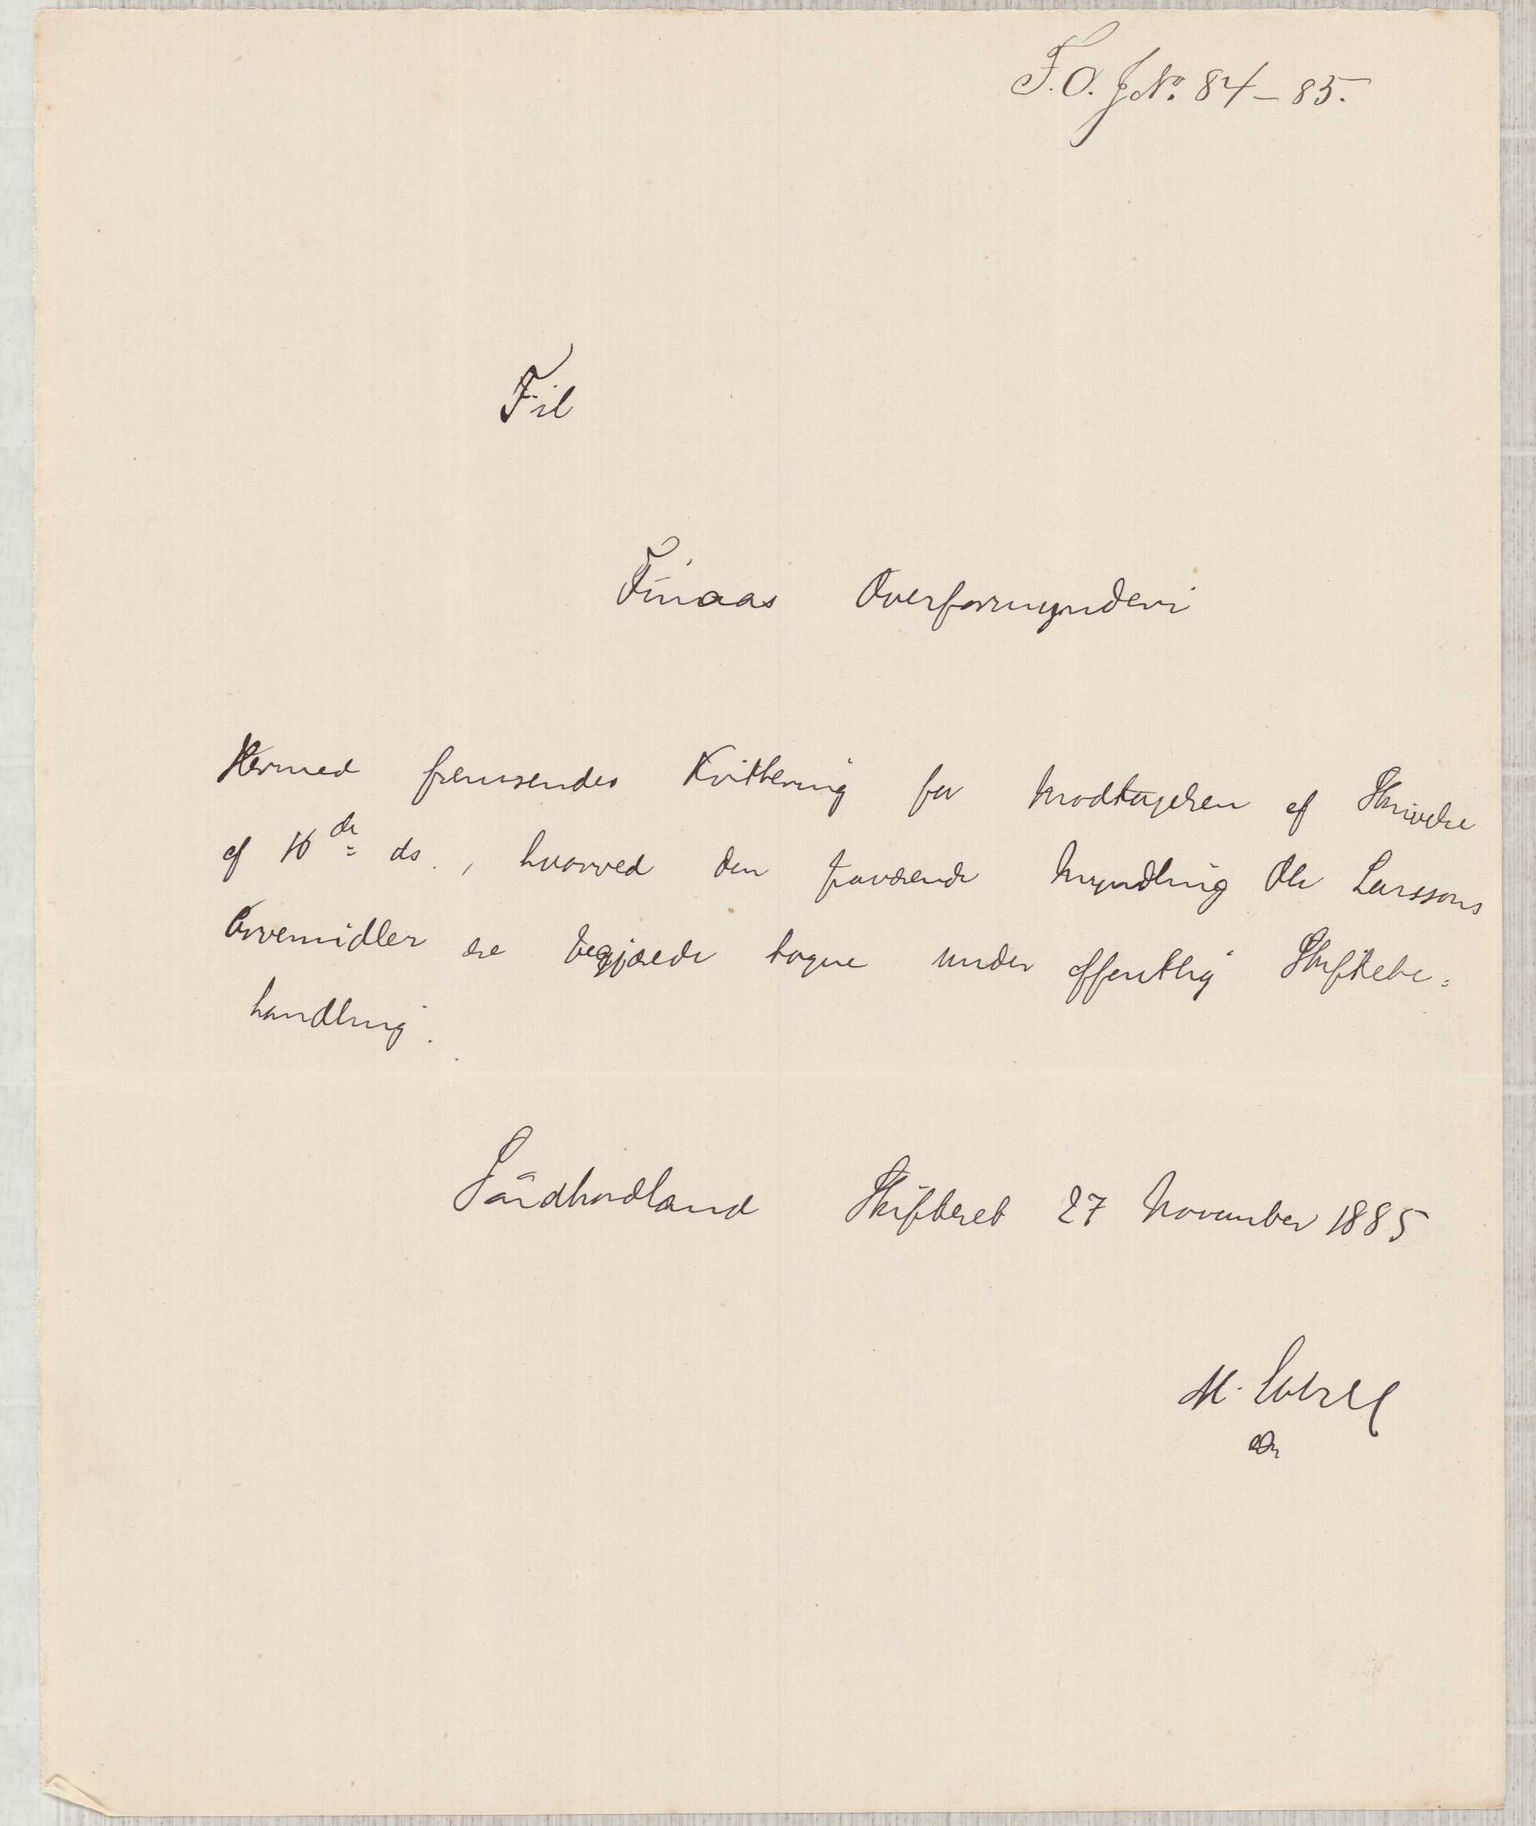 F. O. J No. 84 – 85.
Til
Finaas Overformynderi
Hermed fremsendes Kvittering for Modtagelsen af Skrivelse
af 16de ds., hvorved den fraværende Myndling Ole Larssons
Arvemidler ere begjærede tagne under offentlig Skiftebe=
handling.
Söndhordland Skifteret 27 November 1885
M.